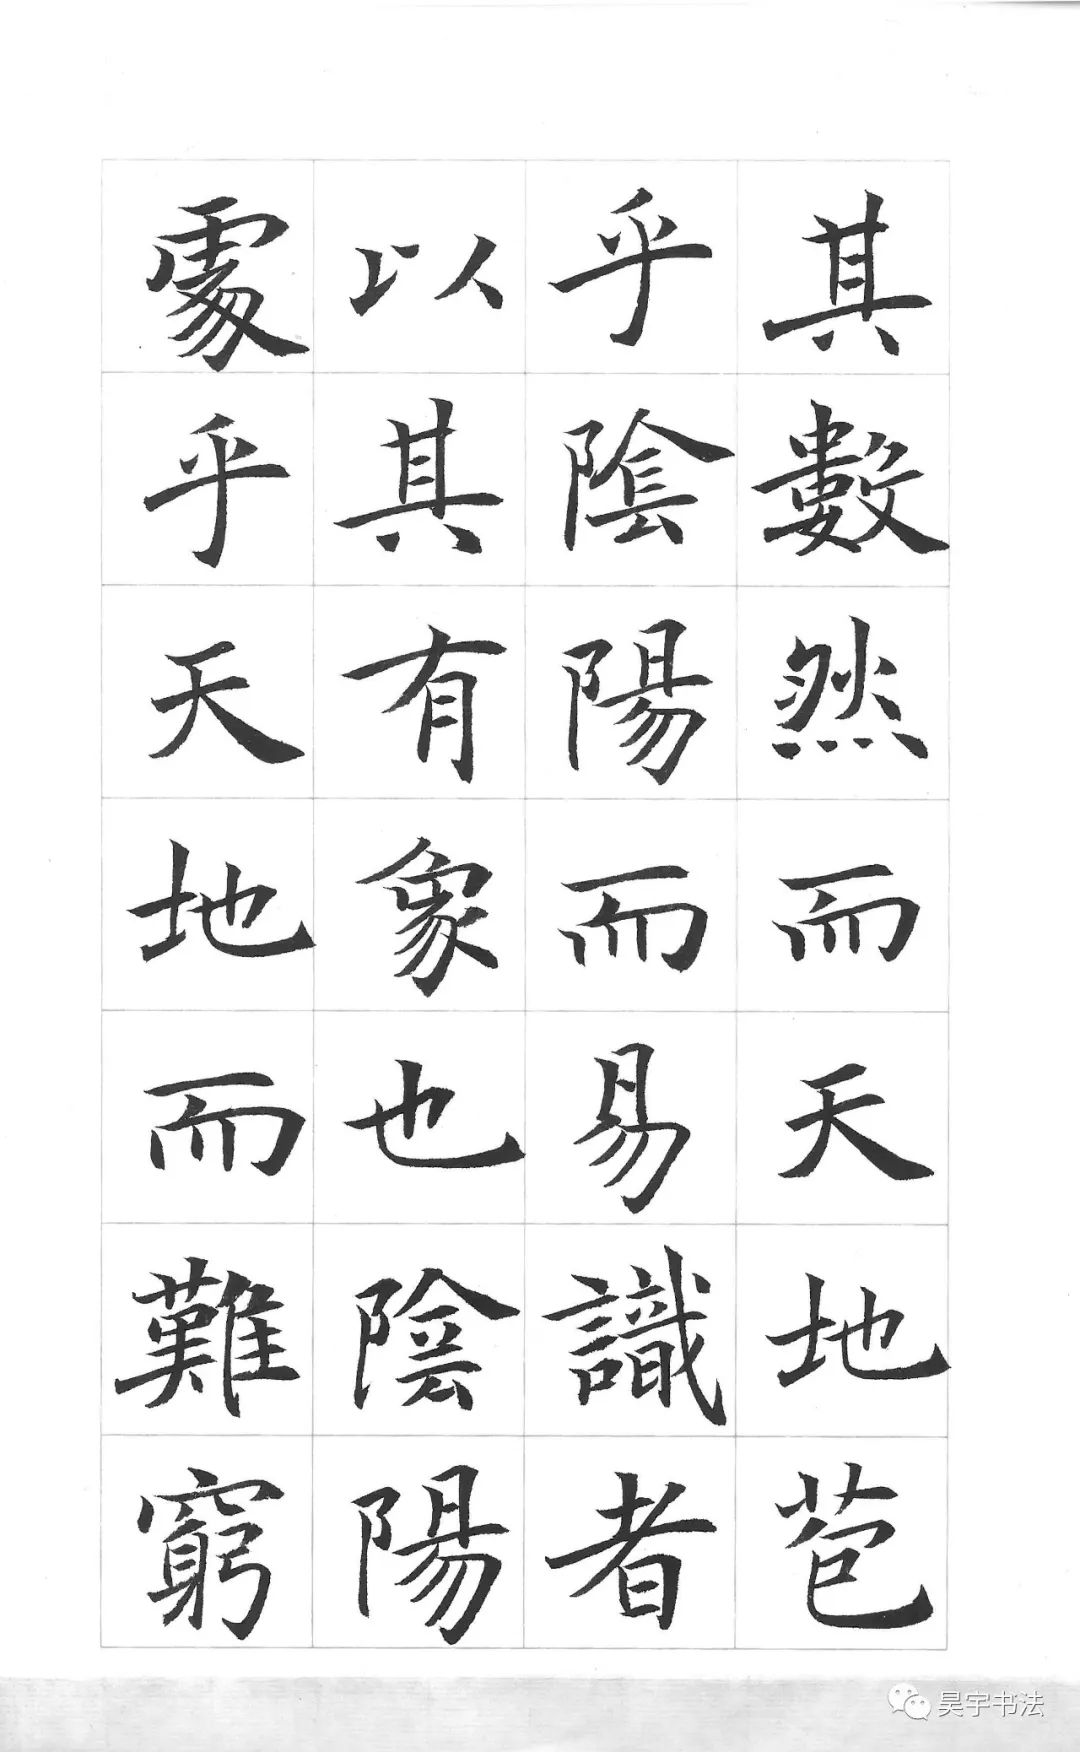 其數然而天地苞
乎陰陽而易識者
以其有象也陰陽
處乎天地而難窮
昊宇书法